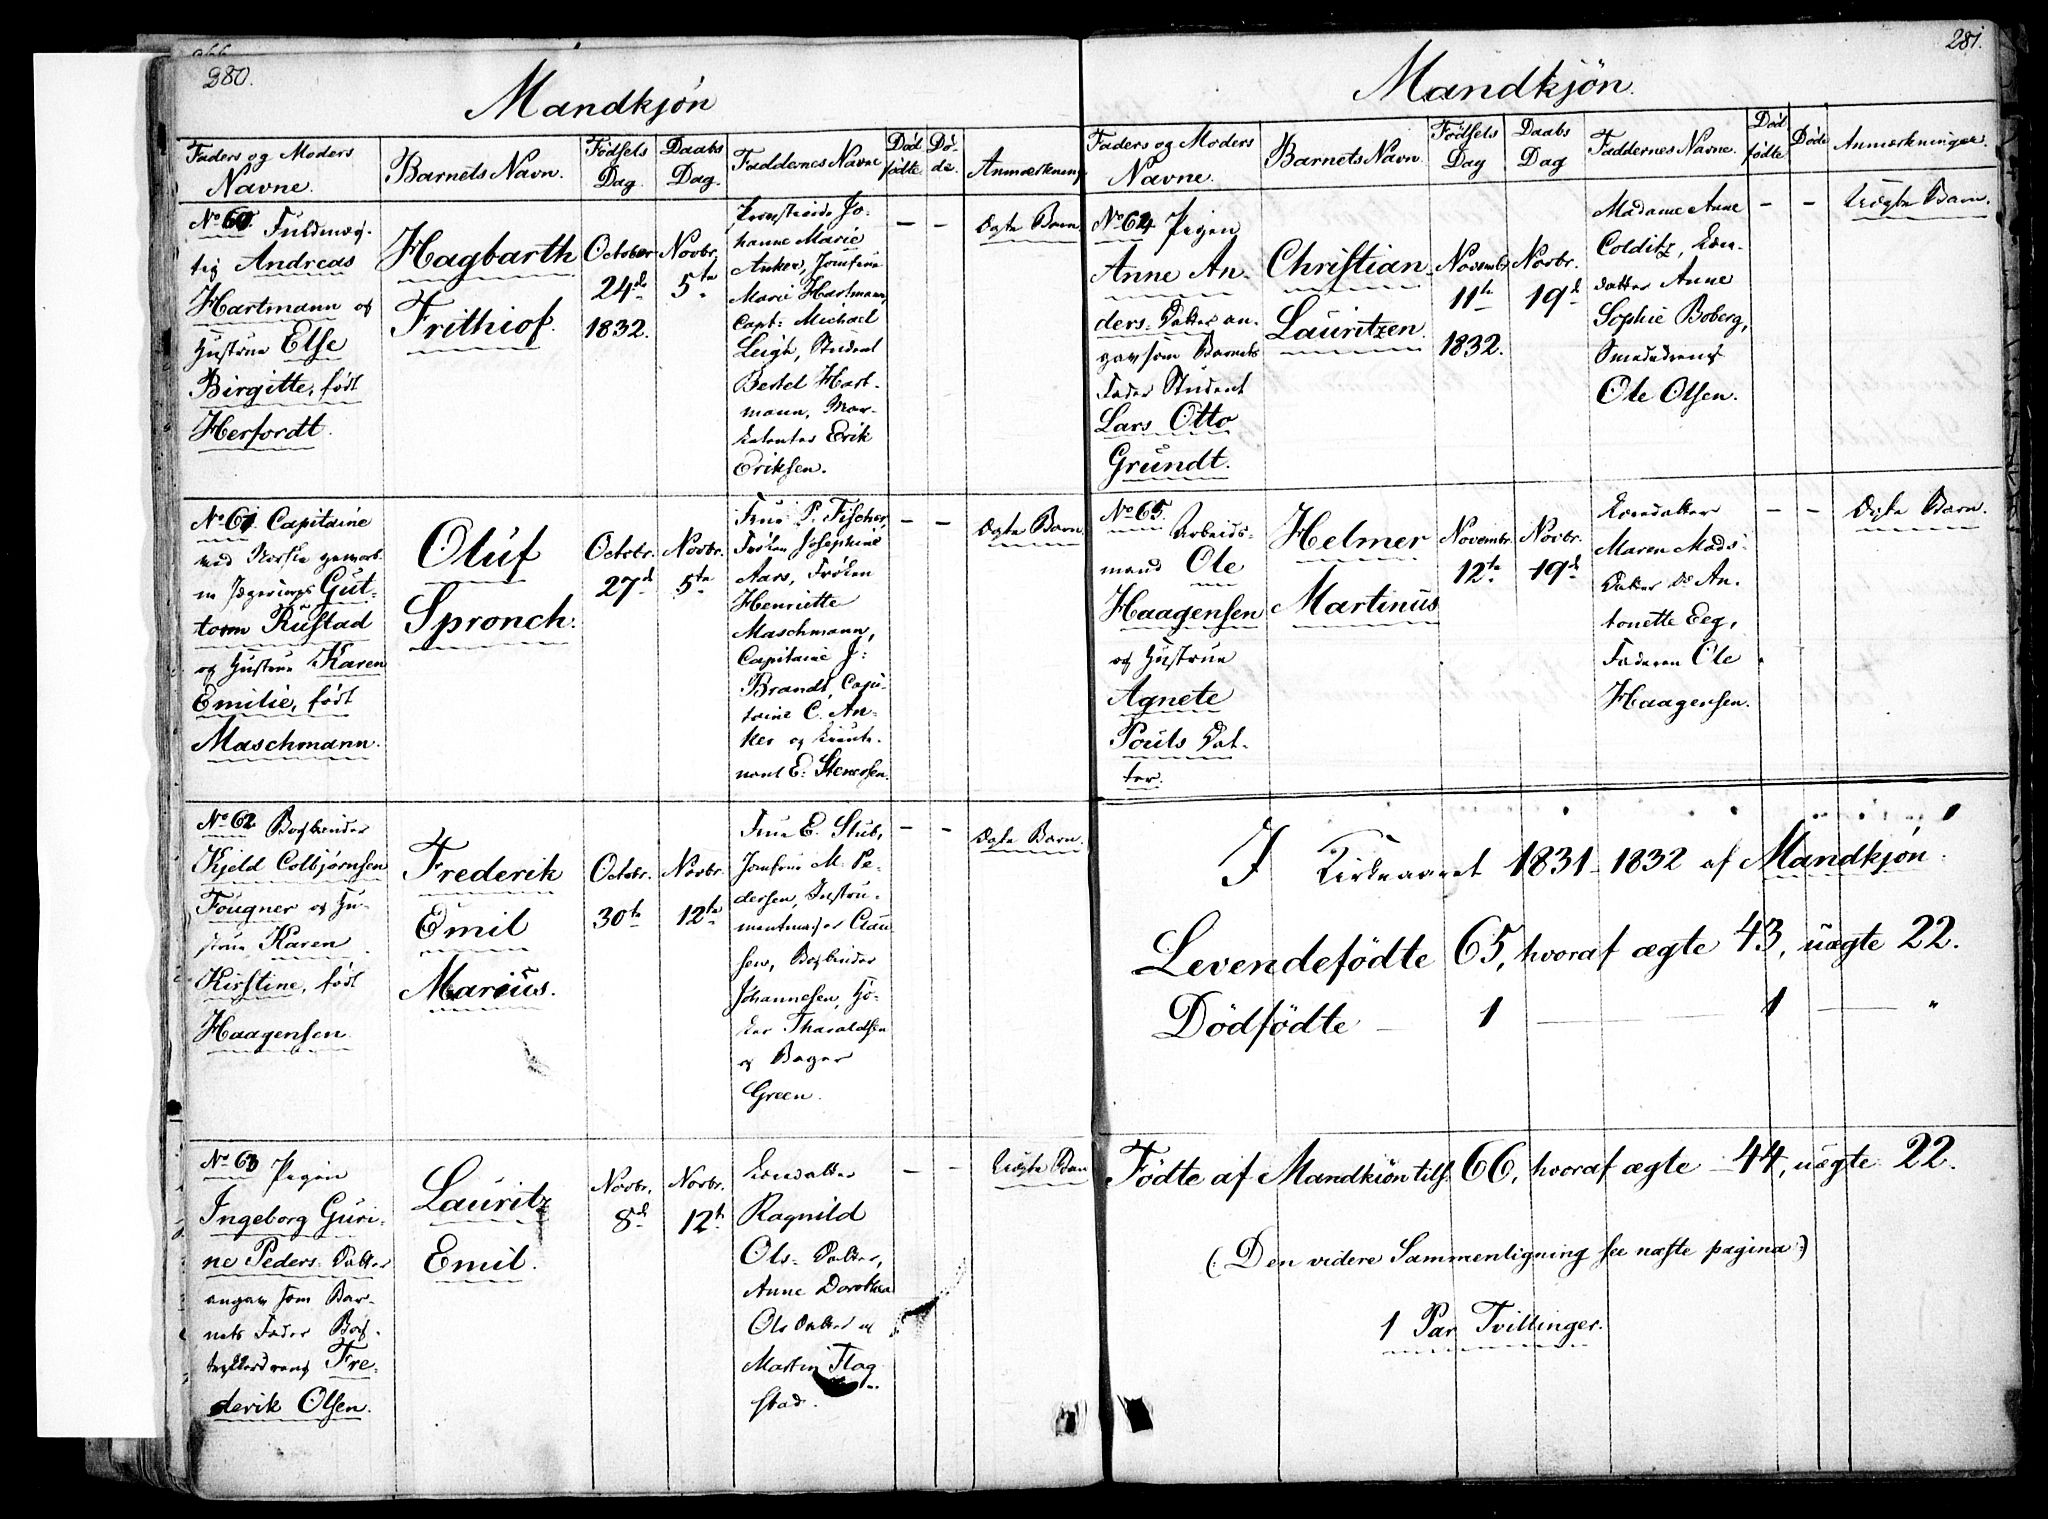 280.
Mandkjøn
Faders og Moders
Navne.
Barnets Navn.
Fødsels
Dag.
Daabs
Dag.
Faddernes Navne
Død
fødte
Dø-
de.
Anmærkning
No 60. Fuldmæg-
tig Andreas
Hartmann og
Hustrue Else
Birgitte, født
Herfordt.
Hagbarth
Frithiof.
October
24de
1832.
Novbr.
5te
Jo-
hanne Marie
Anker, Jomfrue
Marie Hartmann,
Capt: Michael
Leigh, Student
Bertel Hart-
mann, Mar-
Erik
Eriksen.
– –
Ægte Barn.
No 61. Capitaine
ved Norske
Gut-
torm Rustad
og Hustrue Karen
Emilie, født
Maschmann.
Oluf
Spronch.
Octobr.
27d
Novbr.
5te
Frue P. Fischer,
Frøken Josephine
Aars, Frøken
Henriette
Maschmann,
Capitaine J:
Brandt, Capi-
taine C. An-
ker og Lieute-
nant E: Stenersen.
– –
Ægte Barn.
No 62. Bogbinder
Kjeld Colbjørnsen
Fougner og Hu-
strue Karen
Kirstine, født
Haagensen.
Frederik
Emil
Marius.
Octobr.
30te
Novbr.
12te
Frue E. Stub,
Jomfrue M. Pe-
dersen, Instru-
mentmager Clau-
sen, Bogbinder
Johannesen, Hø-
ker Tharaldsen
og Bager
Green.
– –
Ægte Barn.
No 63 Pigen
Ingeborg Guri-
ne Peders-Datter
angav som Bar-
nets Fader Bog-
trykkerdreng Fre-
derik Olsen.
Lauritz
Emil.
Novbr.
8d
Novbr.
12te
Ragnild
Ols-Datter,
Anne Dorothea
Olsdatter og
Martin Flag-
stad.
– –
Uægte Barn
281.
Mandkjön.
Faders og Moders
Navne.
Barnets Navn.
Födsels
Dag
Daabs
Dag
Faddernes Navne.
Död
födte
Döde
Anmærkninger.
No 64. Pigen
Anne An-
ders-Datter an-
gav som Barnets
Fader Student
Lars Otto
Grundt.
Christian
Lauritzen.
Novembr.
11te
1832.
Novbr.
19d
Madame Anne
Colditz, Kon-
datter Anne
Sophie Boberg,
Smededreng
Ole Olsen.
– –
Uægte Barn.
No 65. Arbeids-
mand Ole
Haagensen
og Hustrue
Agnete
Pouls Dat-
ter.
Helmer
Martinus
Novembr.
12te
Novbr.
19d
Maren Mads-
Datter Do An-
tonette Eeg,
Faderen Ole
Haagensen.
– –
Ægte Barn.
I Kirkeaaret 1831-1832 af Mandkjön.
Levendefödte 65, hvoraf ægte 43, uægte 22.
Dödfödte – 1 – 1 – "
Födte af Mandkiön tils. 66, hvoraf ægte 44, uægte 22.
(: Den videre Sammenligning see næste pagina :)
1 Par Tvillinger.